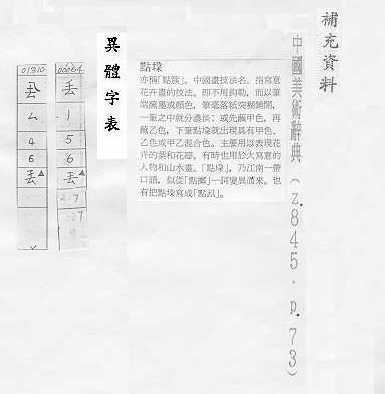 補充資料
中國美術辭典(Z.845.P.73)
點垛
亦稱「點簇」。中國畫技法名。指寫意
花卉畫的技法。即不用鉤勒，而以筆
端蘸墨或顏色，
一筆之中就分濃淡；或先蘸甲色，再
蘸乙色，下筆點垛就出現具有甲色、
乙色或甲乙混合色。主要用以表現花
卉的葉和花瓣，有時也用於大寫意的
人物和山水畫。「點垛」，乃江南一帶
口語，似從「點擲」一詞變異演來。也
有把點垛寫成
異體字表
00064
丟
1
5
6
丟▲
01310
厶
4
6
丟▲